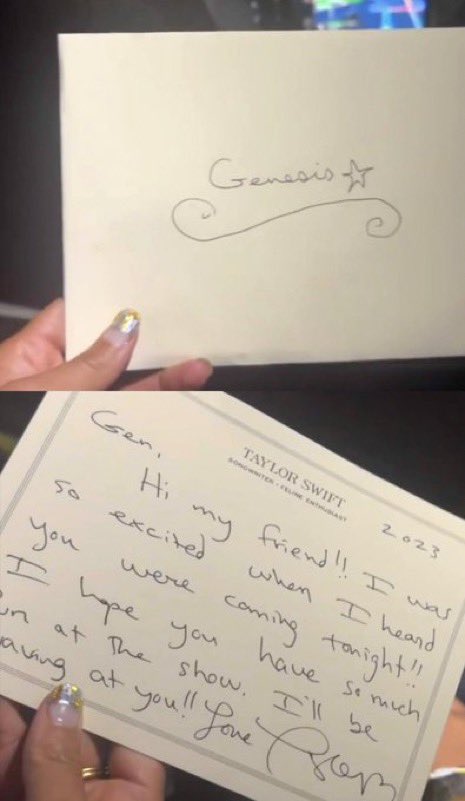 Genesis
TAYLOR SWIFT
SONGWRITER • FELINE ENTHUSIAST
2023
Gen,
Hi my friend!! I was
so excited when I heard
you were coming tonight!!
I hope you have so much
un at the show. I'll be
aving at you!! Love